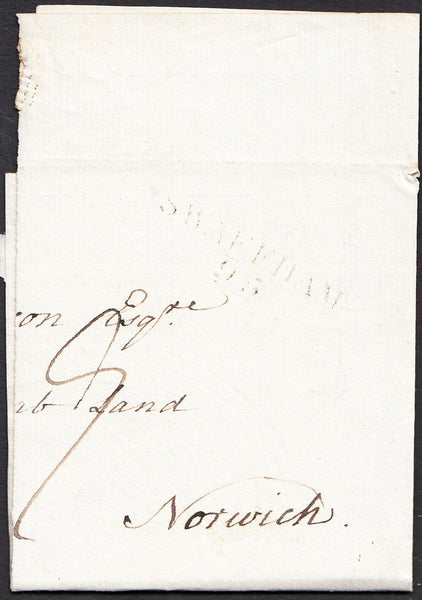 SWAFFHAM
on Esqre.
mb Land
Norwich.